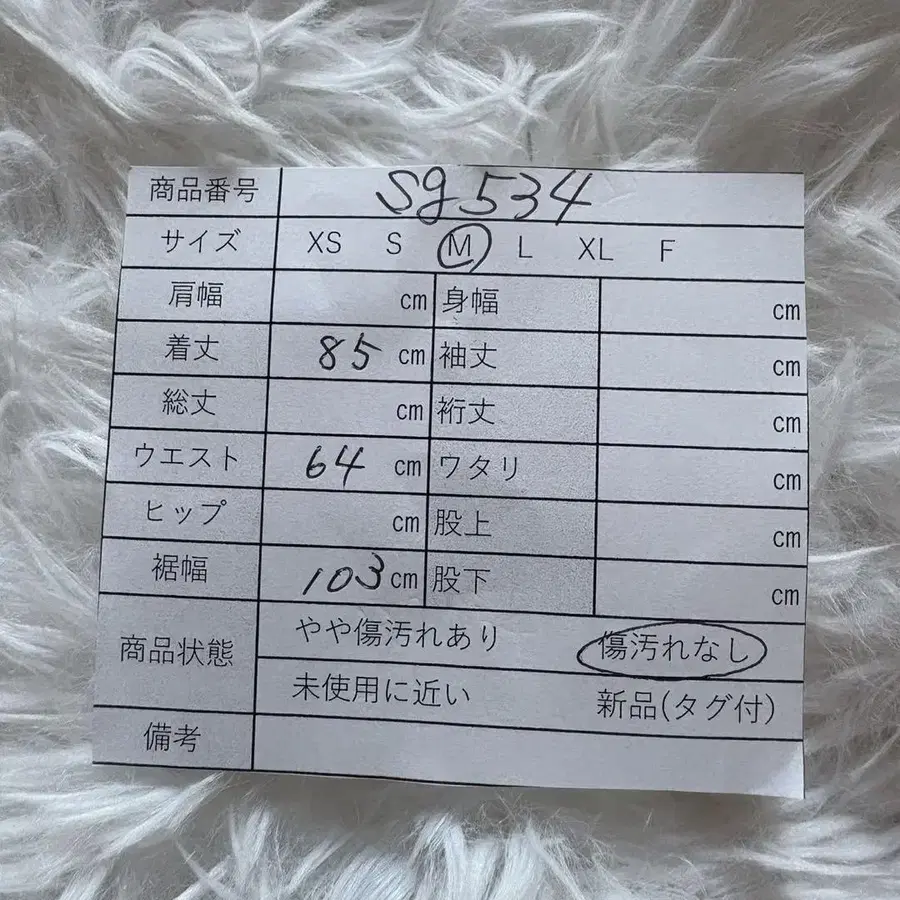 商品番号 sg534
サイズ XS S M L XL F
肩幅 cm 身幅 cm
着丈 85 cm 袖丈 cm
総丈 cm 裄丈 cm
ウエスト 64 cm ワタリ cm
ヒップ cm 股上 cm
裾幅 103 cm 股下 cm
商品状態 やや傷汚れあり 傷汚れなし
未使用に近い 新品(タグ付)
備考